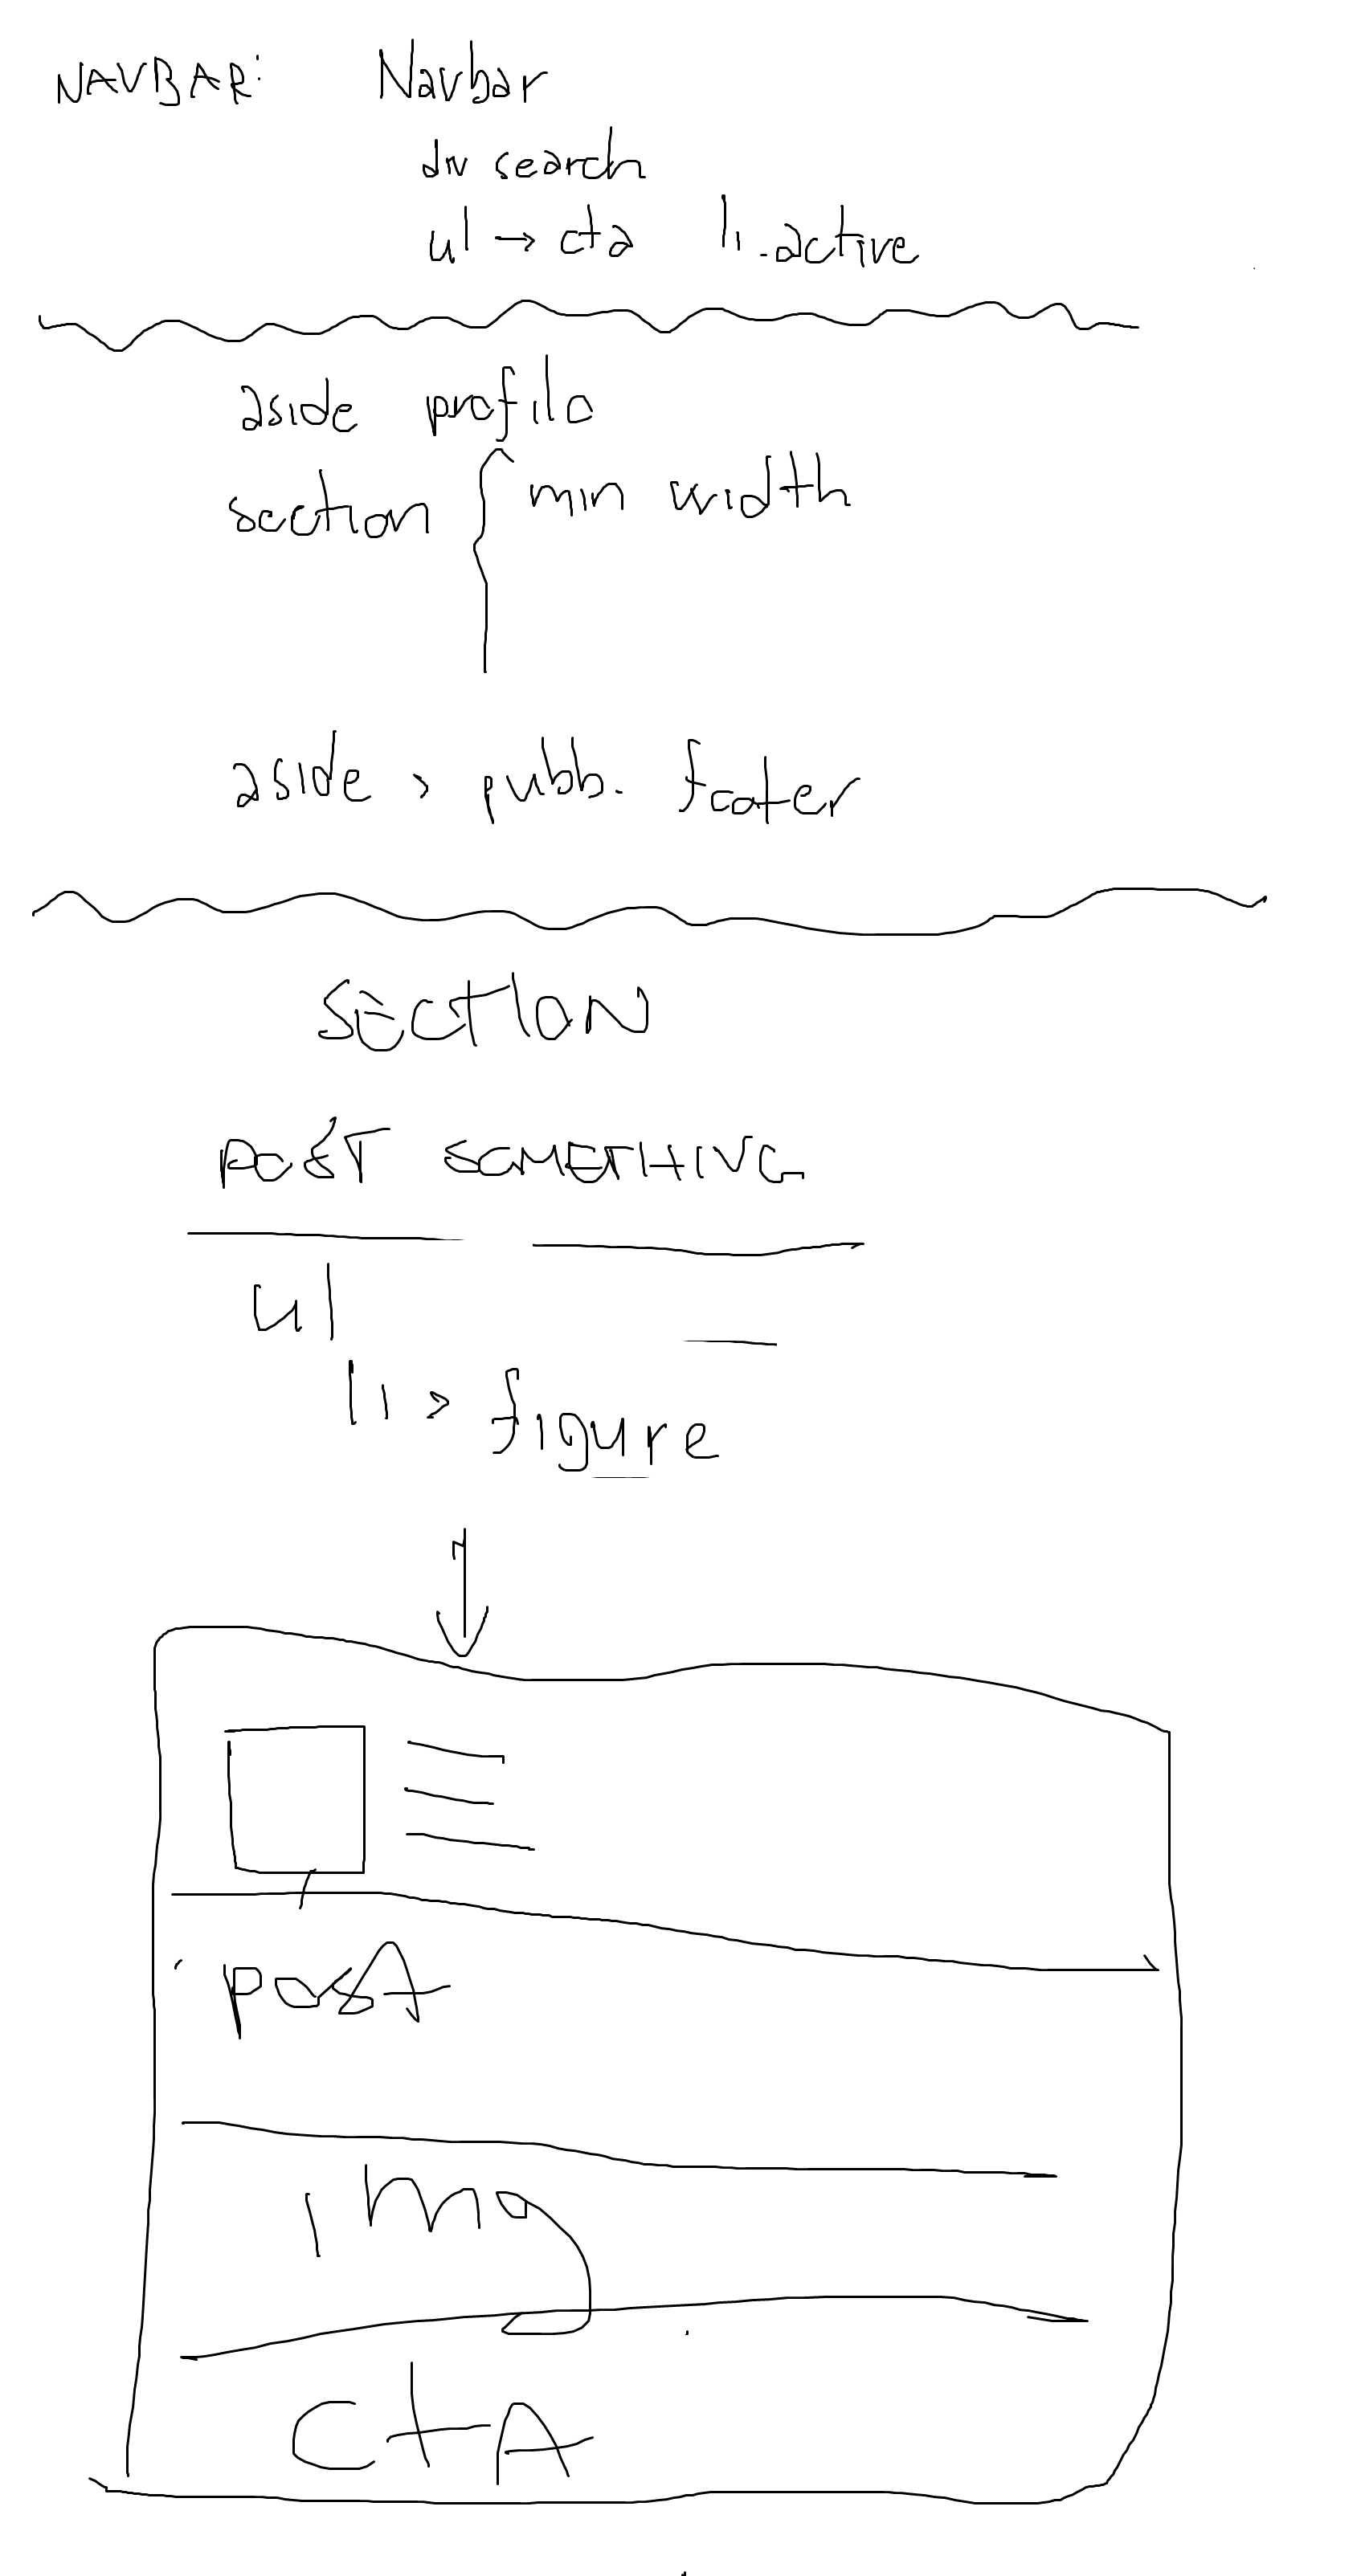 NAVBAR: Navbar
div search
ul → cta li.active
aside profilo
section { min width
aside > pubb. footer
SECTION
POST SOMETHING
ul
li > figure
post
img
CTA